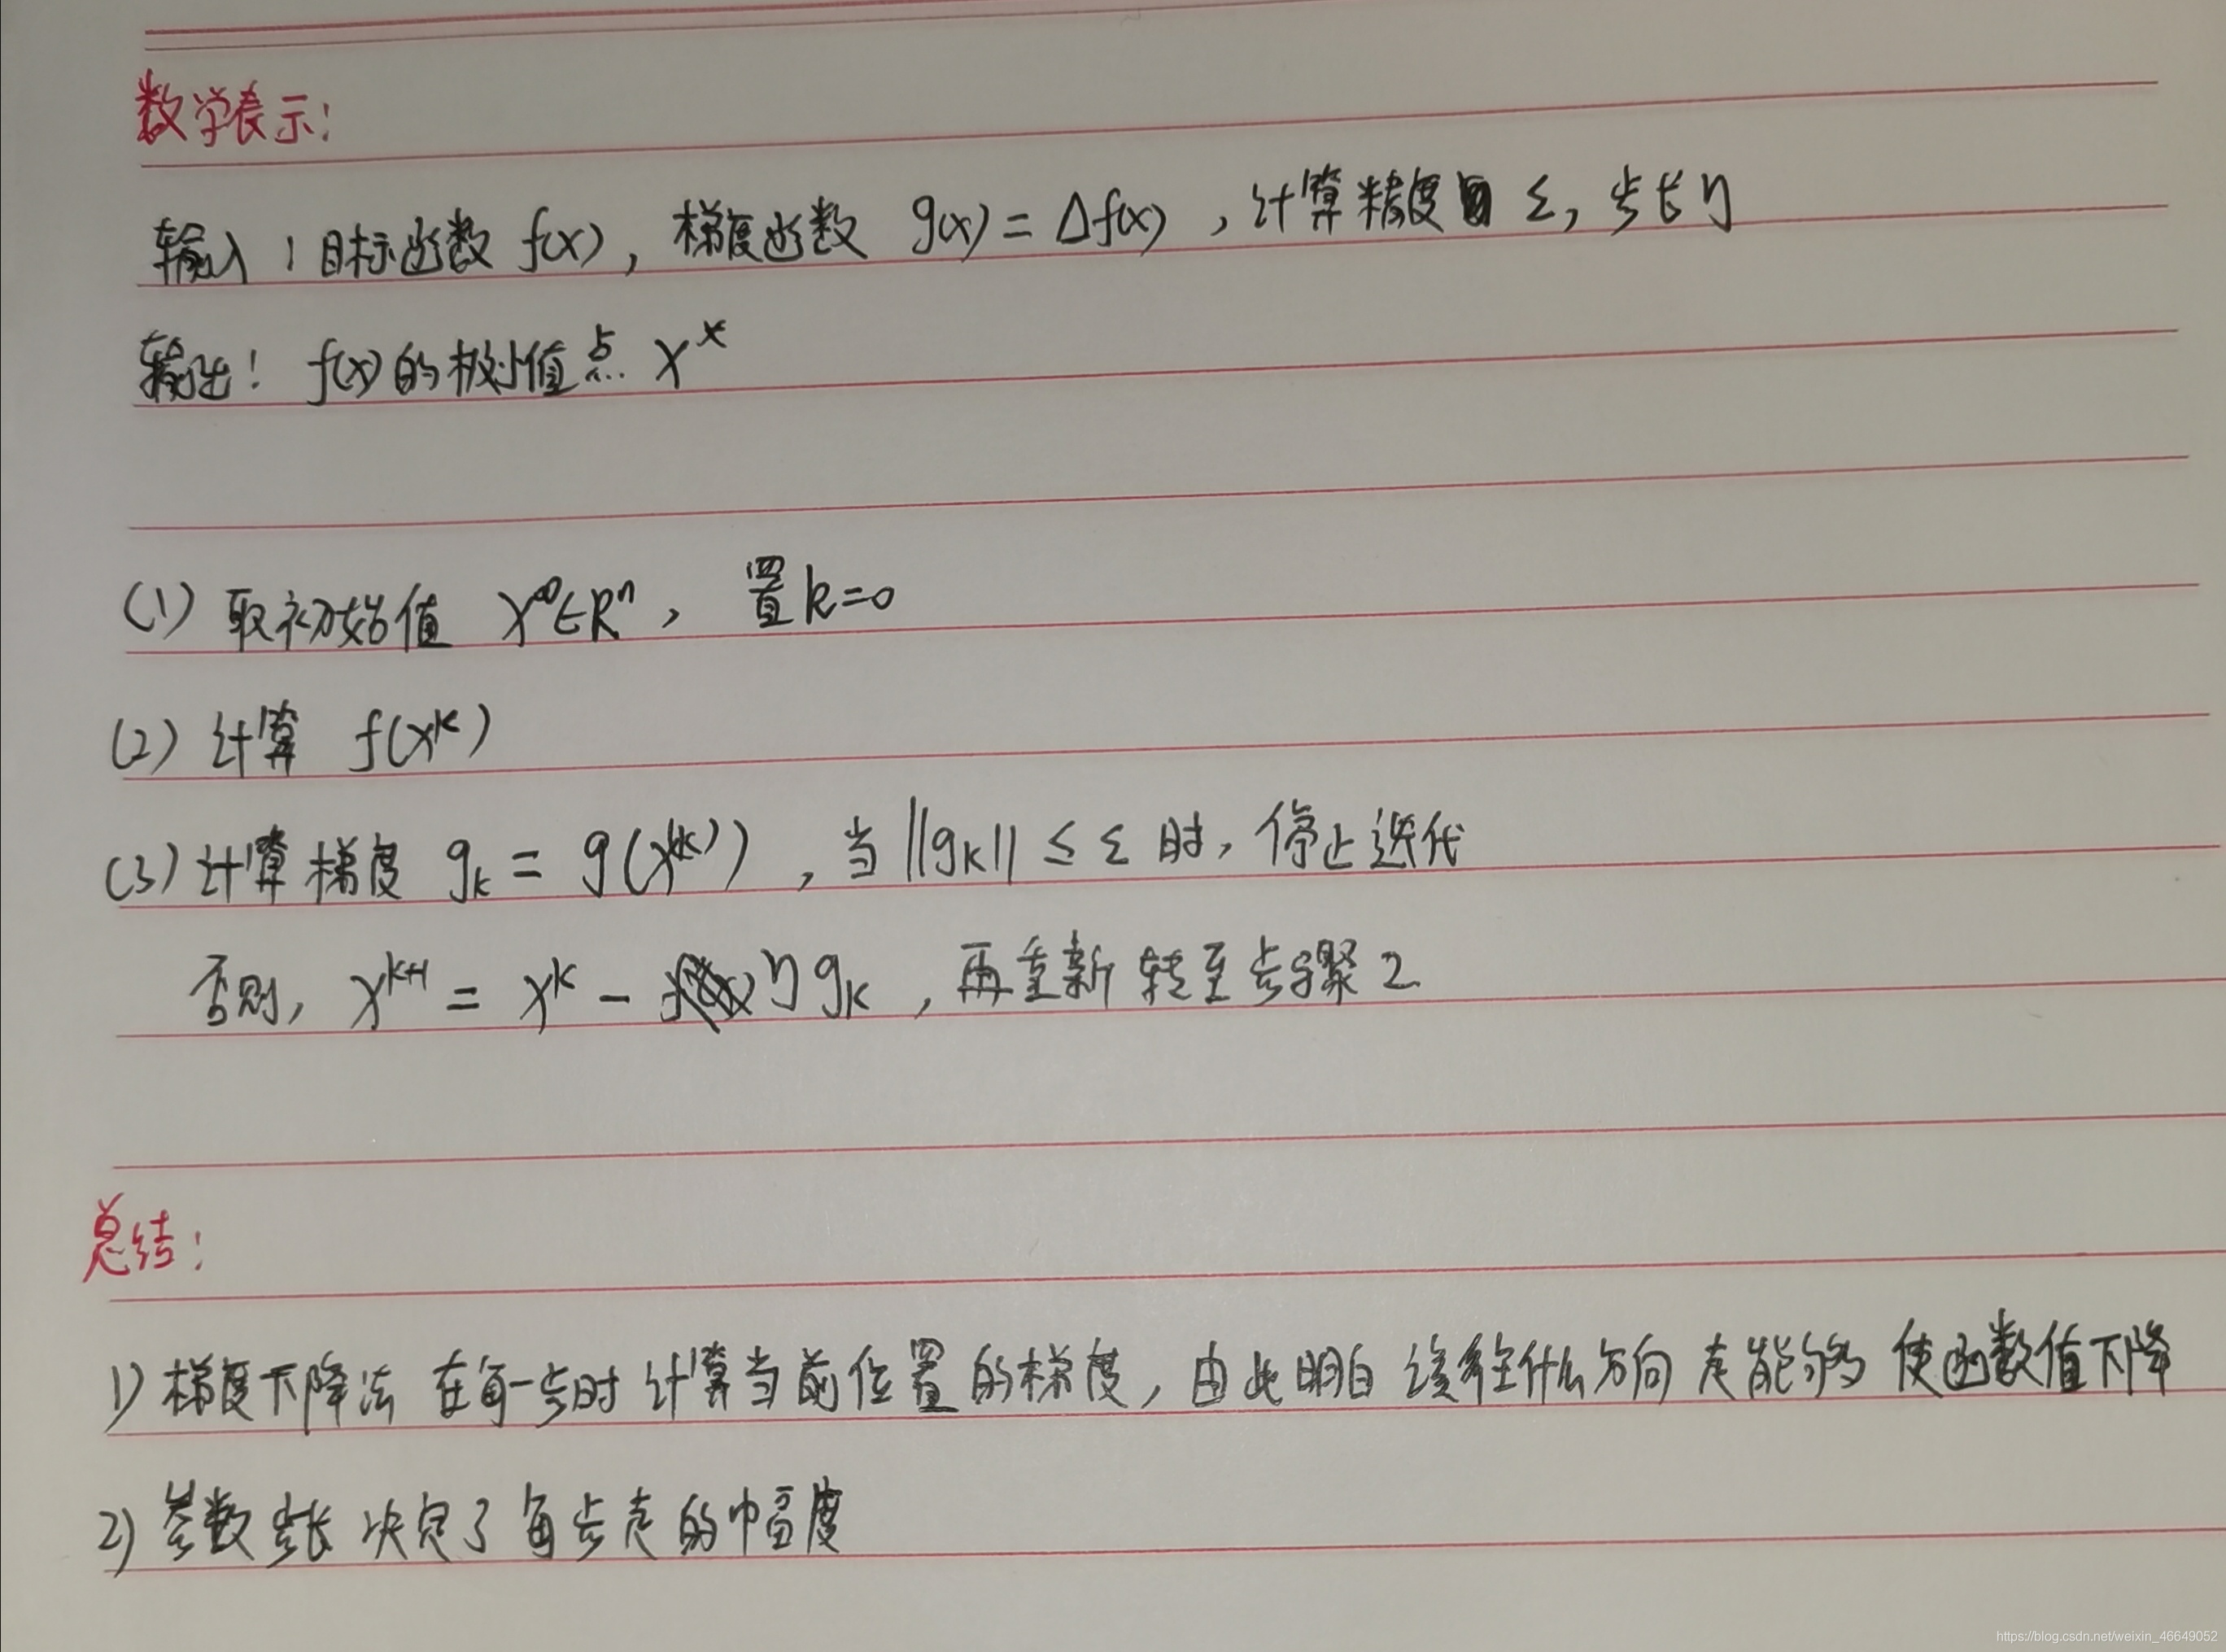 数学表示：
输入：目标函数 f(x)，梯度函数 g(x) = Δf(x)，计算精度 Σ，步长η
输出：f(x)的极小值点 x*
(1) 取初始值 x⁽⁰⁾∈Rⁿ，置k=0
(2) 计算 f(xᵏ)
(3) 计算梯度 gₖ = g(x⁽ᵏ⁾)，当||gₖ|| ≤ Σ 时，停止迭代
否则，xᵏ⁺¹ = xᵏ - ηgₖ，再重新转至步骤2
总结：
1) 梯度下降法 在每一步时 计算当前位置的梯度，由此明白 该往什么方向 走能够 使函数值下降
2) 参数步长 决定了每步走的幅度
https://blog.csdn.net/weixin_46649052